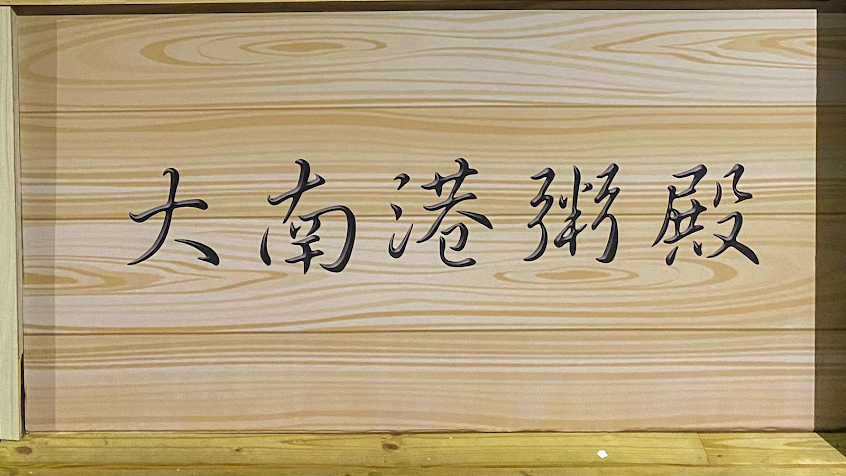 大南港粥殿